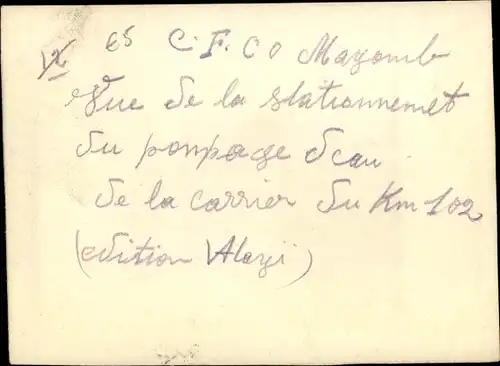 12 65 C.F.C O Mayomb
Vue de la stationnemet
du pompage deau
de la carrier du Km 102
(edition Alazi)